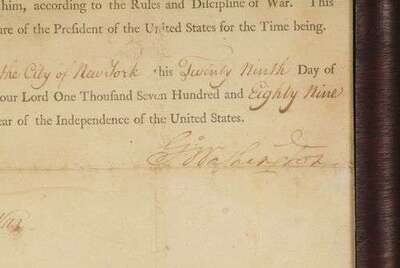 him, according to the Rules and Discipline of War. This
ure of the President of the United States for the Time being.
the City of New York this Twenty Ninth Day of
our Lord One Thousand Seven Hundred and Eighty Nine
ear of the Independence of the United States.
Go. Washington
War